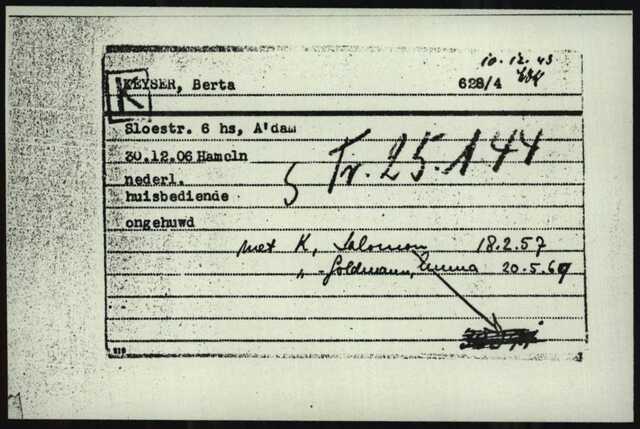 10.12.43
K KEYSER, Berta 628/4
Sloestr. 6 hs, A'dam
30.12.06 Hameln
nederl.
huisbediende
ongehuwd
Tr. 25.1 44
met K, Salomon 18.2.57
" - Goldmann, Emma 20.5.69